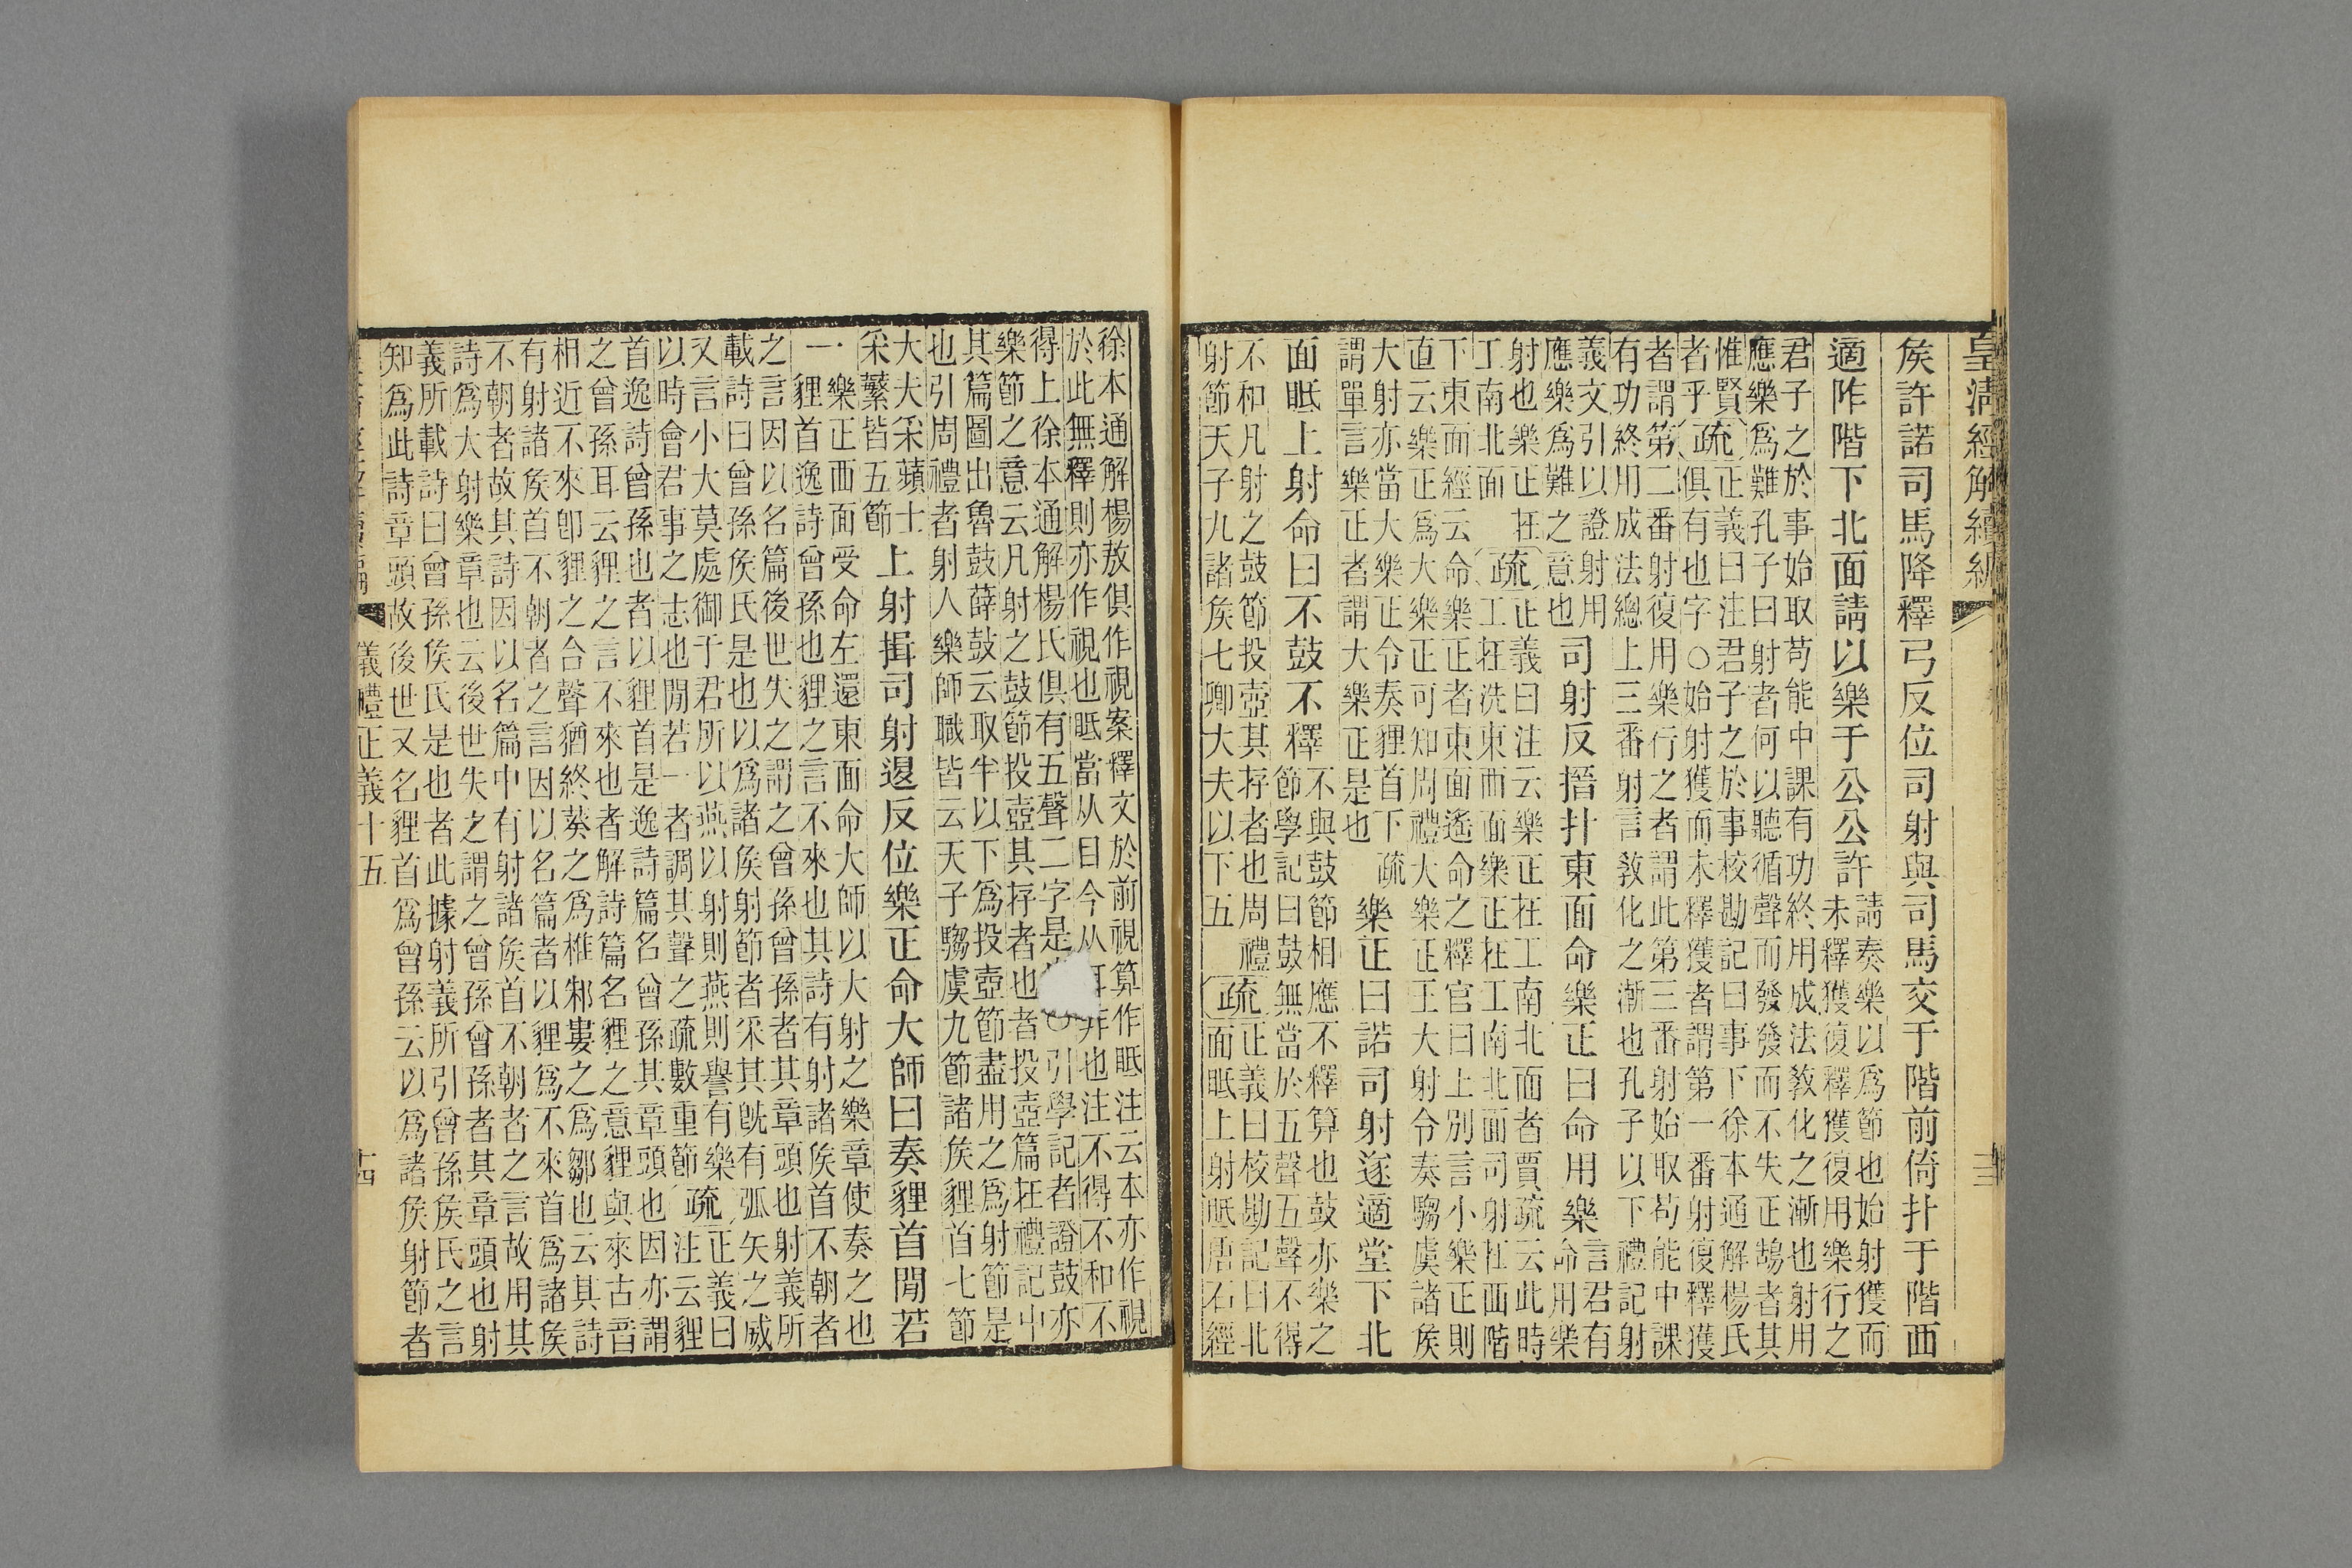 皇清經解續編
矦許諾司馬降釋弓反位司射與司馬交于階前倚扑于階西
適阼階下北面請以樂于公公許
請奏樂以爲節也始射獲而
未釋獲復釋獲復用樂行之
君子之於事始取苟能中課有功終用成法敎化之漸也射用
應樂爲難孔子曰射者何以聽循聲而發發而不失正鵠者其
惟賢
者乎
疏
正義曰注君子之於事校勘記曰事下徐本通解楊氏
俱有也字○始射獲而未釋獲者謂第一番射復釋獲
者謂第二番射復用樂行之者謂此第三番射始取苟能中課
有功終用成法總上三番射言敎化之漸也孔子以下禮記射
義文引以證射用
應樂爲難之意也
司射反搢扑東面命樂正曰命用樂
言君有
命用樂
射也樂正在
工南北面
疏
正義曰注云樂正在工南北面者賈疏云此時
工在洗東西面樂正在工南北面司射在西階
下東面經云命樂正者東面遙命之釋官曰上別言小樂正則
直云樂正爲大樂正可知周禮大樂正王大射令奏騶虞諸矦
大射亦當大樂正令奏貍首下疏
謂單言樂正者謂大樂正是也
樂正曰諾司射遂適堂下北
面眡上射命曰不鼓不釋
不與鼓節相應不釋算也鼓亦樂之
節學記曰鼓無當於五聲五聲不得
不和凡射之鼓節投壺其存者也周禮
射節天子九諸矦七卿大夫以下五
疏
正義曰校勘記曰北
面眡上射眡唐石經
徐本通解楊敖俱作視案釋文於前視算作眡注云本亦作視
於此無釋則亦作視也眡當从目今从非也注不得不和不
得上徐本通解楊氏俱有五聲二字是○引學記者證鼓亦
樂節之意云凡射之鼓節投壺其存者也者投壺篇在禮記中
其篇圖出魯鼓薛鼓云取半以下爲投壺節盡用之爲射節是
也引周禮者射人樂師職皆云天子騶虞九節諸矦貍首七節
大夫采蘋士
采蘩皆五節
上射揖司射退反位樂正命大師曰奏貍首閒若
一
樂正西面受命左還東面命大師以大射之樂章使奏之也
貍首逸詩曾孫也貍之言不來也其詩有射諸矦首不朝者
之言因以名篇後世失之謂之曾孫曾孫者其章頭也射義所
載詩曰曾孫矦氏是也以爲諸矦射節者采其旣有弧矢之威
又言小大莫處御于君所以燕以射則燕則譽有樂
以時會君事之志也閒若一者調其聲之疏數重節
疏
正義曰
注云貍
首逸詩曾孫也者以貍首是逸詩篇名曾孫其章頭也因亦謂
之曾孫耳云貍之言不來也者解詩篇名貍之意貍與來古音
相近不來卽貍之合聲猶終葵之爲椎邾婁之爲鄒也云其詩
有射諸矦首不朝者之言因以名篇者以貍爲不來首爲諸矦
不朝者故其詩因以名篇中有射諸矦首不朝者之言故用其
詩爲大射樂章也云後世失之謂之曾孫曾孫者其章頭也射
義所載詩曰曾孫矦氏是也者此據射義所引曾孫矦氏之言
知爲此詩章頭故後世又名貍首爲曾孫云以爲諸矦射節者
儀禮正義十五
十四